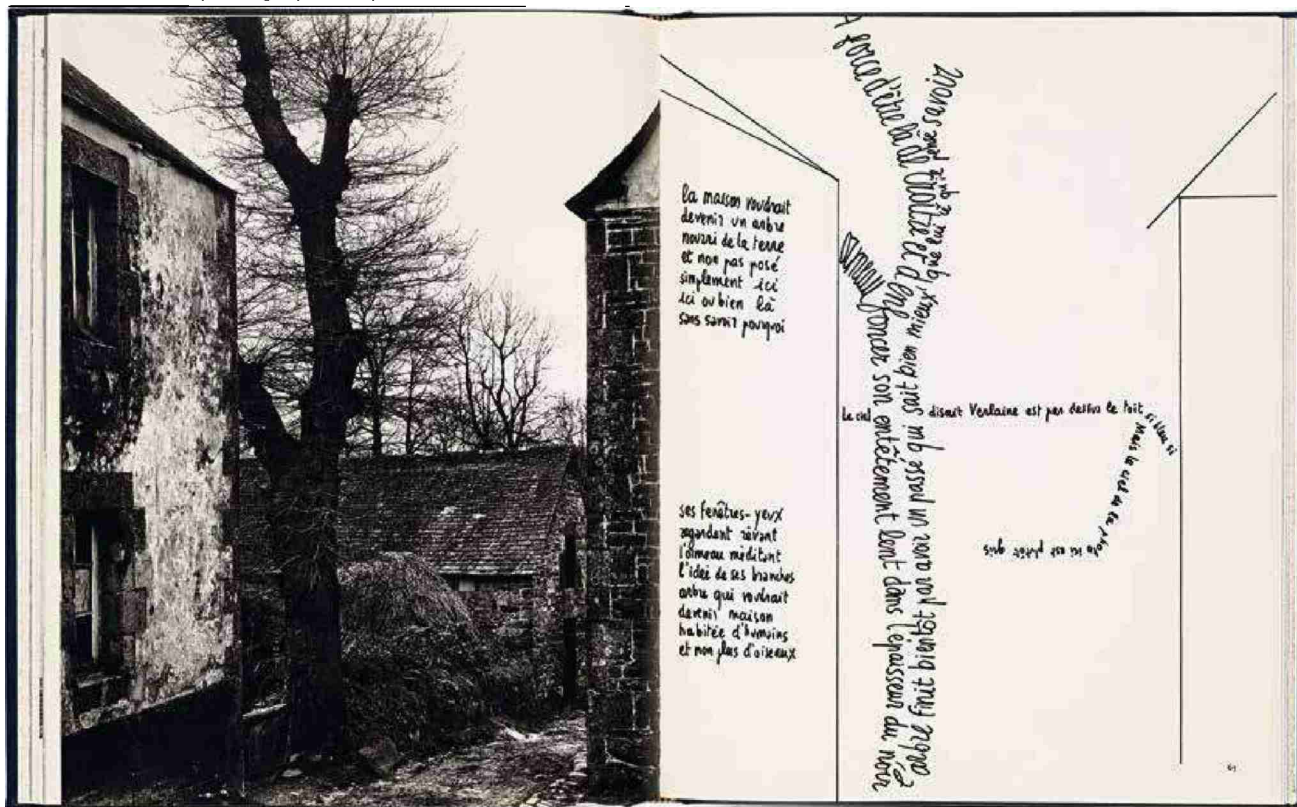 la maison voudrait
devenir un arbre
nourri de la terre
et non pas posé
simplement ici
ici ou bien là
sans savoir pourquoi
ses fenêtres-yeux
regardent rêvant
l'ormeau méditant
l'idée de ses branches
arbre qui voudrait
devenir maison
habitée d'humains
et non plus d'oiseaux
A force d'être là de croître et d'enfoncer son entêtement lent dans l'épaisseur du noir
l'arbre finit bientôt par avoir un passé qui sait bien mieux que lui ce qu'il peut savoir
Le ciel disait Verlaine est par dessus le toit si bleu si
mais le ciel de la photo
ici est plutôt gris